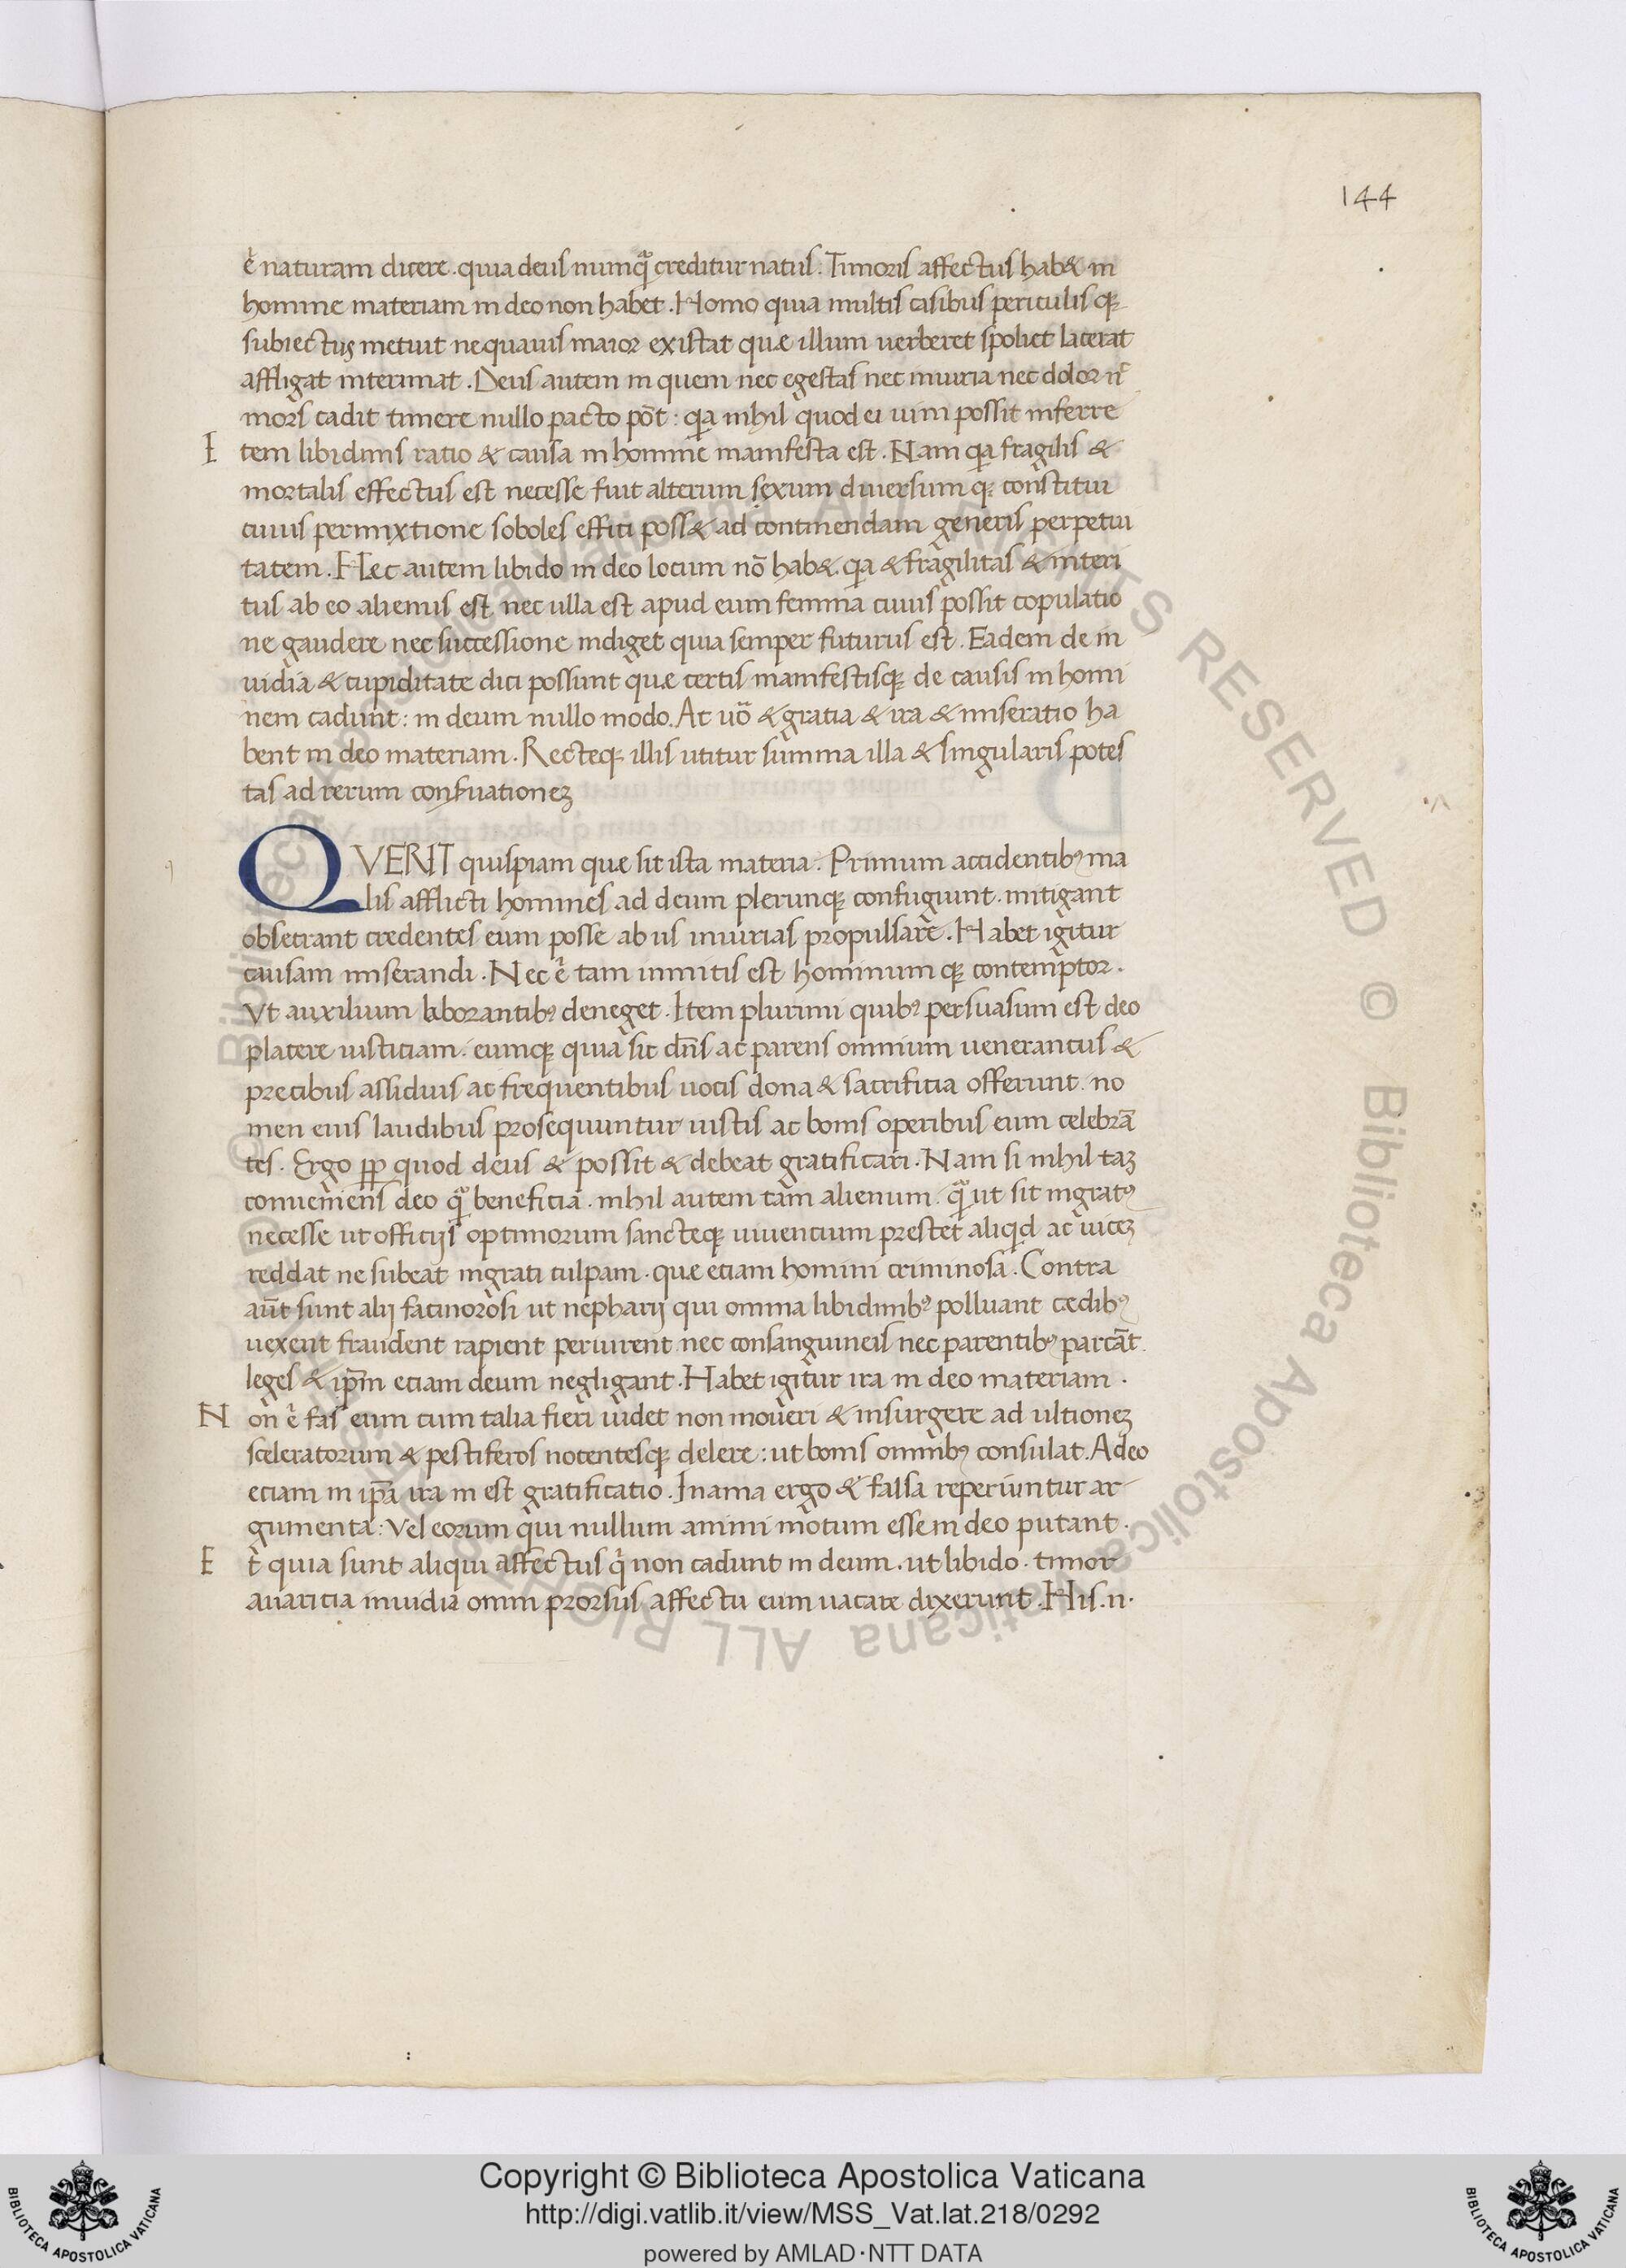 144
ē naturam dicere. quia deus numqͣ creditur natus. Timoris affectus hab& in
homine materiam in deo non habet. Homo quia multis casibus periculisqꝫ
subiectus metuit ne quauis maior existat quæ illum uerberet spoliet lacerat
affligat interimat. Deus autem in quem nec egestas nec iniuria nec dolor n̄
mors cadit timere nullo pacto pōt: qa nihil quod ei uim possit inferre
Item libidinis ratio & causa in homine manifesta est. Nam qa fragilis &
mortalis effectus est necesse fuit alterum sexum diuersumqꝫ constitui
cuius permixtione soboles effici poss& ad continendam generis perpetui
tatem. Hec autem libido in deo locum nō hab&. qa & fragilitas & interi
tus ab eo alienus est nec ulla est apud eum femina cuius possit copulatio
ne gaudere nec successione indiget quia semper futurus est. Eadem de in
uidia & cupiditate dici possunt quæ certis manifestisqꝫ de causis in homi
nem cadunt: in deum nullo modo. At uō & gratia & ira & miseratio ha
bent in deo materiam. Recteqꝫ illis utitur summa illa & singularis potes
tas ad rerum conseruationeꝫ
QVERIT quispiam que sit ista materia. Primum accidentibꝰ ma
lis afflicti homines ad deum plerunqꝫ confugiunt. mitigant
obsecrant credentes eum posse ab iis iniurias propulsare. Habet igitur
causam miserandi. Nec ē tam inmitis est hominumqꝫ contemptor.
Vt auxilium laborantibꝰ deneget. Item plurimi quibꝰ persuasum est deo
platere iusticiam. eumqꝫ quia sit dn̄s ac parens omnium uenerantus &
precibus assiduis ac frequentibus uotis dona & sacrificia offerunt. no
men eius laudibus prosequuntur iustis ac bonis operibus eum celebrā
tes. Ergo pp quod deus & possit & debeat gratificari. Nam si nihil taꝫ
conueniens deo qͣ beneficia. nihil autem tam alienum. qͣ ut sit ingratꝰ
necesse ut officijs optimorum sancteqꝫ uiuencium prestet aliqid ac uiceꝫ
reddat ne subeat ingrati culpam. que eciam homini criminosa. Contra
aūt sunt alij facinorosi ut nepharij qui omnia libidinibꝰ polluant cædibꝰ
uexent fraudent rapient periurent nec consanguineis nec parentibꝰ parcāt.
leges & ip̄m eciam deum negligant. Habet igitur ira in deo materiam.
Non ē fas eum cum talia fieri uidet non moueri & insurgere ad ultioneꝫ
sceleratorum & pestiferos nocentesqꝫ delere: ut bonis omnibꝰ consulat. Adeo
eciam in ip̄a ira in est gratificatio. Inania ergo & falsa reperiuntur ar
gumenta: Vel eorum qui nullum animi motum esse in deo putant.
Et quia sunt aliqui affectus q̄ non cadunt in deum. ut libido. timor
auaricia inuidia omni prorsus affectu eum uacare dixerunt. His .n.
© Biblioteca Apostolica Vaticana ALL RIGHTS RESERVED
BIBLIOTECA APOSTOLICA VATICANA
Copyright © Biblioteca Apostolica Vaticana
http://digi.vatlib.it/view/MSS_Vat.lat.218/0292
powered by AMLAD·NTT DATA
BIBLIOTECA APOSTOLICA VATICANA